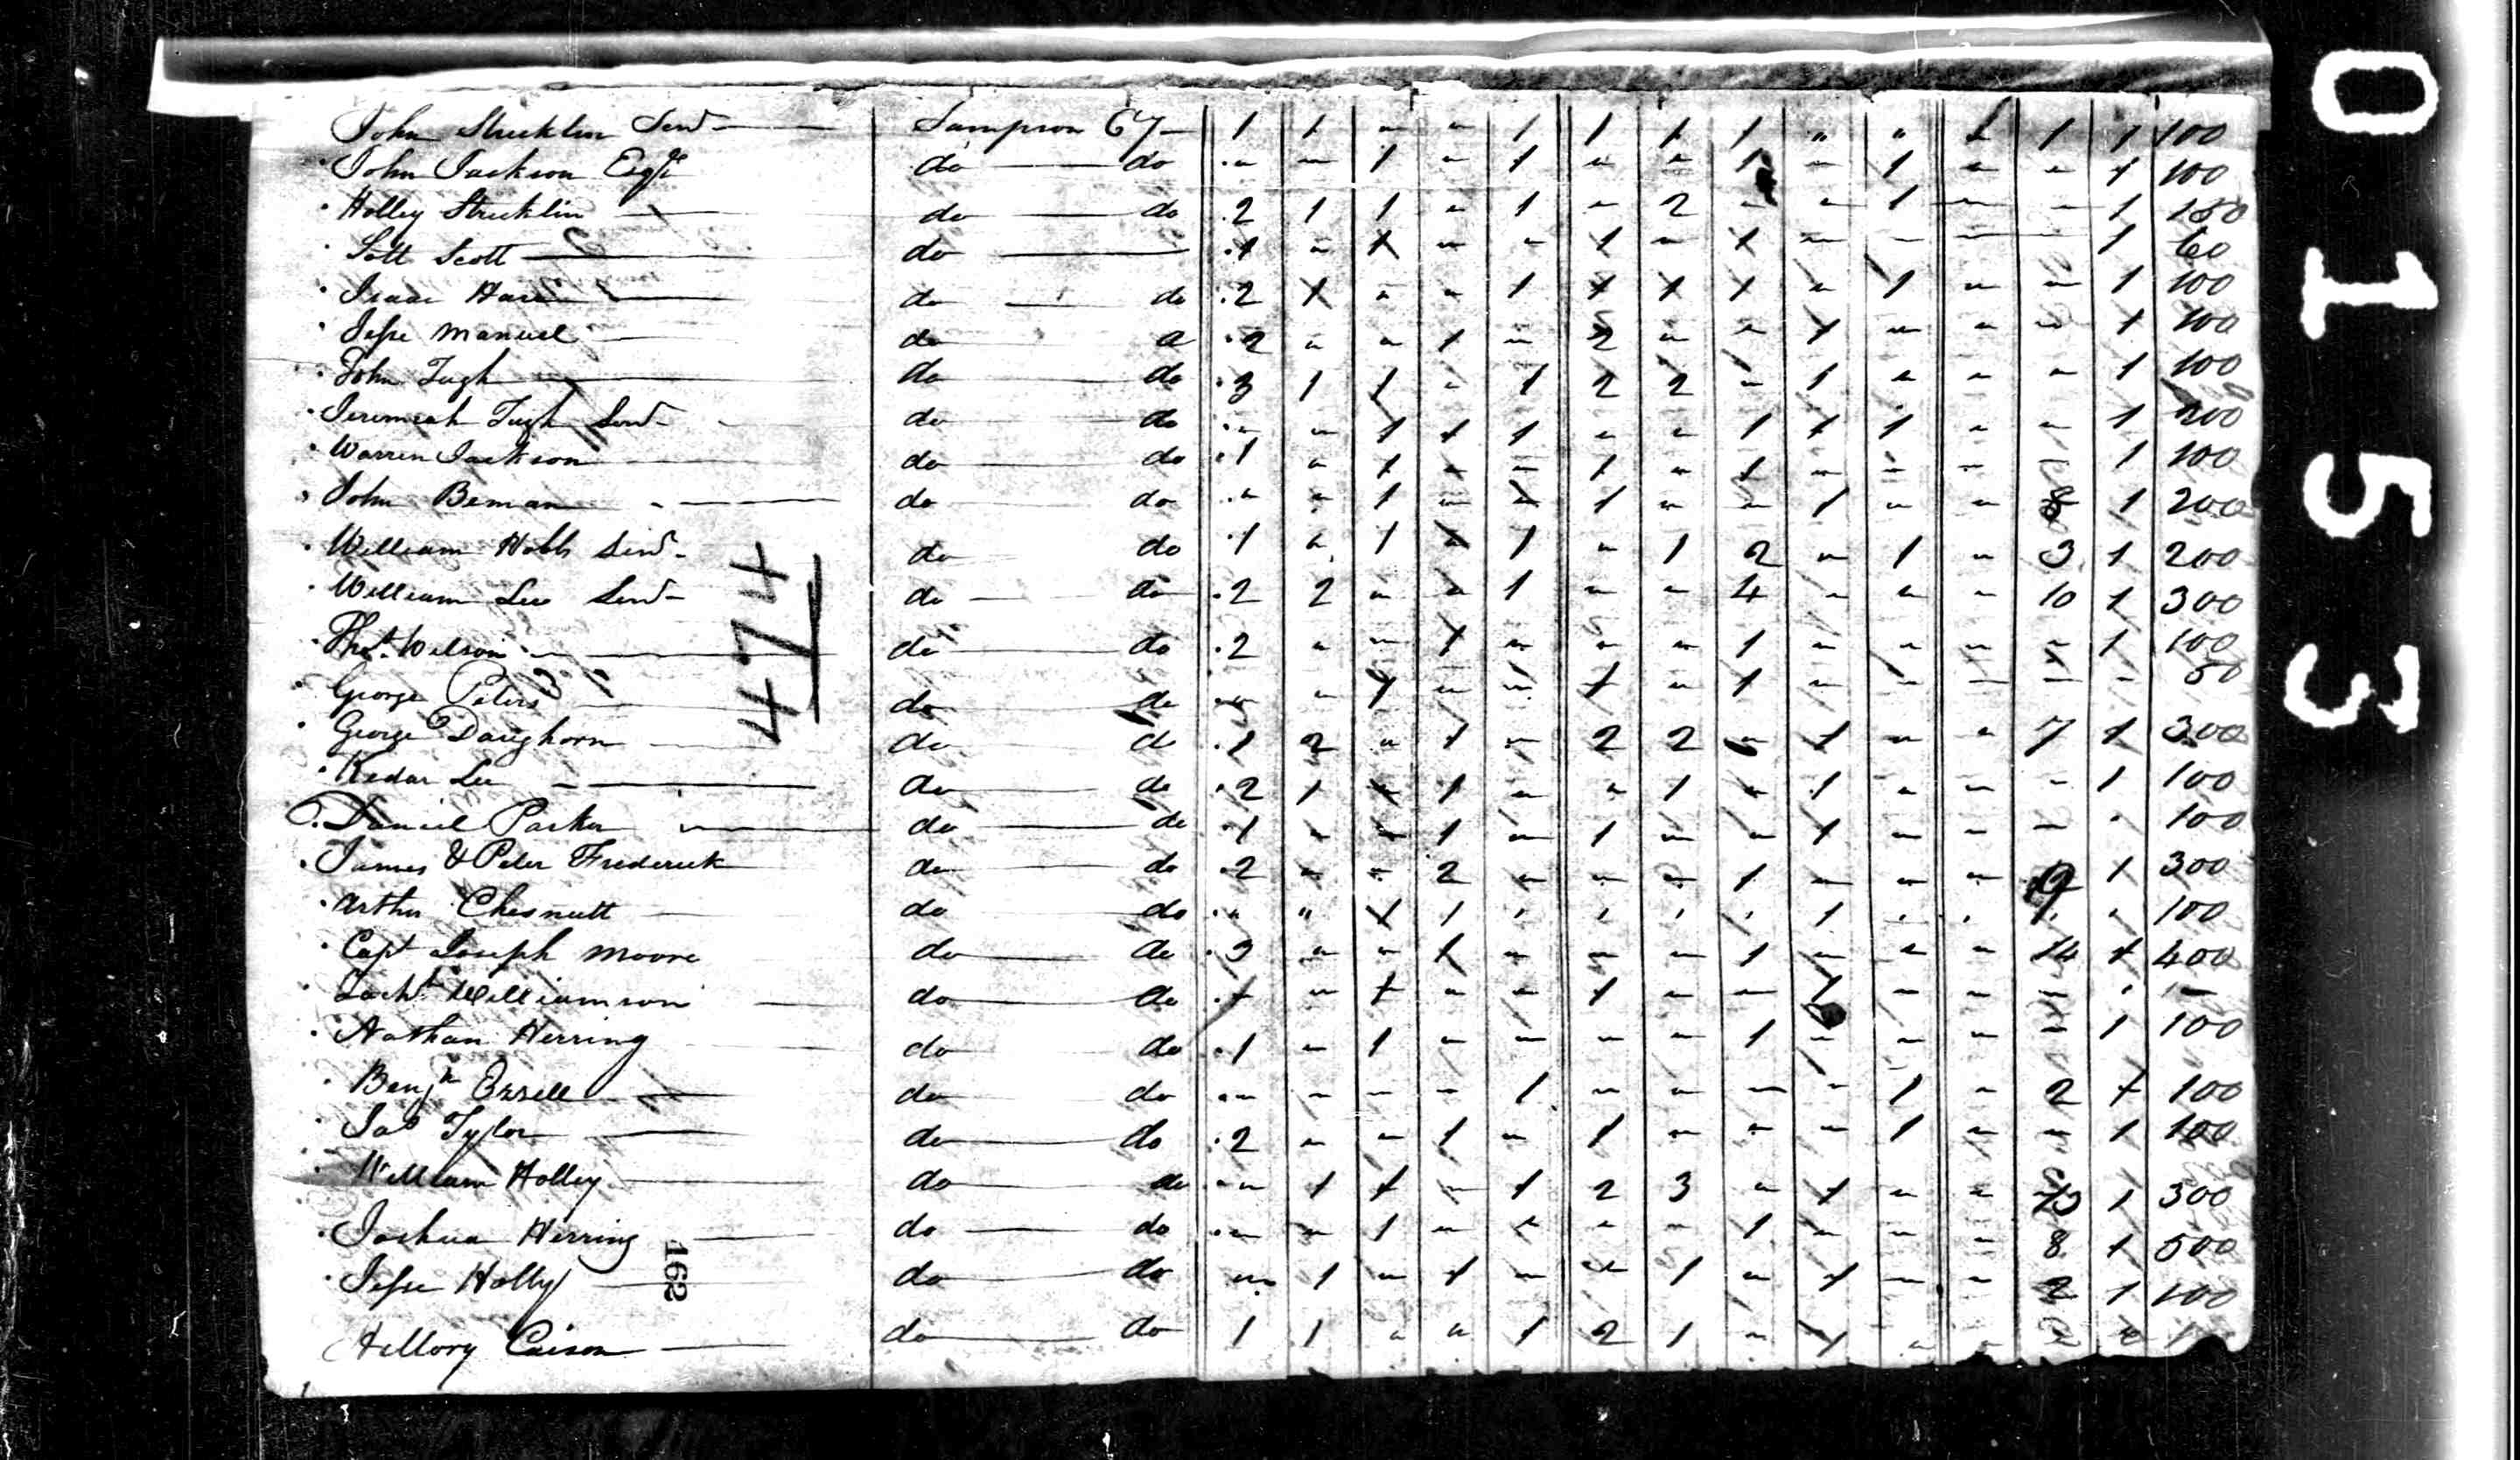 John Stricklin Senr Sampson Cty 1 1 " " 1 1 1 1 " " 1 1 100
John Jackson Esqr do do " " 1 " 1 " " 1 " 1 " " 1 100
Holley Stricklin do do 2 1 1 " 1 " 2 " " 1 " " 1 150
Sott Scott do 1 " 1 " " 1 " 1 " " " " 1 60
Isaac Hare do do 2 1 " " 1 1 1 1 " 1 " " 1 100
Jesse Manuel do 2 " " 1 " 2 " " 1 " " " 1 100
John Tugh do do 3 1 1 " 1 2 2 " 1 " " " 1 100
Jeremiah Tugh Senr do do " " 1 1 1 " " 1 1 1 " " 1 200
Warren Jackson do do 1 " 1 1 " 1 " 1 " " " " 1 100
John Beman do do " " 1 " 1 " " 1 " " 8 1 200
William Hobbs Senr do do 1 " 1 1 1 " 1 2 " 1 " 3 1 200
William Lee Senr do do 2 2 " " 1 " " 4 " " " 10 1 300
Thos. Wilson do do 2 " " 1 " " " 1 " " " " 1 100
George Peters do do " " 1 " " 1 " 1 " " " " " 50
George Daughorn do do 1 2 " 1 " 2 2 " 1 " " 7 1 300
Kedar Lee do do 2 1 1 1 " " 1 " 1 " " " 1 100
Daniel Parker do do 1 1 " 1 " " 1 " " " " 100
James & Peter Frederick do do 2 " " 2 " " " 1 " " " 1 300
Arthur Chesnutt do do " " 1 1 " " " " 1 " " " 100
Capt Joseph Moore do do 3 " " 1 " " " 1 " " " 14 1 400
Williamson do do 1 " 1 " " 1 " " 1 " " " " "
Nathan Herring do do 1 " 1 " " " " 1 " " " " 1 100
Benjn Ezzell do do " " " " 1 " " " " 1 " 2 1 100
Jas Tyler do do 2 " " 1 " 1 " " " 1 " " 1 100
William Holley do do " 1 1 " 1 2 3 " 1 " " 1 300
Joshua Herring do do " " 1 " " " " 1 " " " 8 1 500
Jesse Holly do do " 1 " 1 " " 1 " 1 " " 2 1 100
Hillory Caison do do 1 1 " " 1 2 1 " 1 " "
474
162
0153